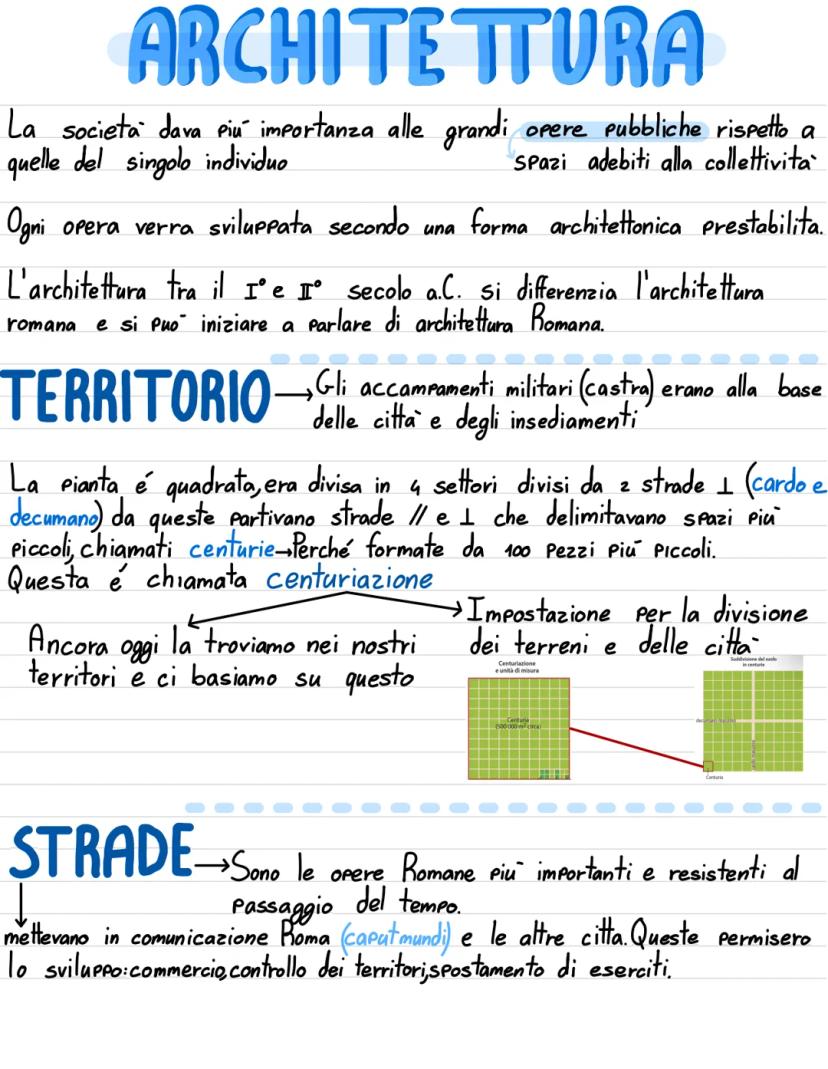 ARCHITETTURA
La società dava più importanza alle grandi opere pubbliche rispetto a
quelle del singolo individuo
spazi adebiti alla collettività
Ogni opera verra sviluppata secondo una forma architettonica prestabilita.
L'architettura tra il I° e II° secolo a.C. si differenzia l'architettura
romana e si può iniziare a parlare di architettura Romana.
TERRITORIO → Gli accampamenti militari (castra) erano alla base
delle città e degli insediamenti
La pianta é quadrata, era divisa in 4 settori divisi da 2 strade ⊥ (cardo e
decumano) da queste partivano strade // e ⊥ che delimitavano spazi più
piccoli, chiamati centurie → Perché formate da 100 pezzi più piccoli.
Questa é chiamata centuriazione
Ancora oggi la troviamo nei nostri
territori e ci basiamo su questo
Impostazione per la divisione
dei terreni e delle città
Centuriazione
e unità di misura
Centurie
(500 000 m² circa)
Suddivisione del suolo
in centurie
decumano massimo
Centuria
STRADE → Sono le opere Romane più importanti e resistenti al
passaggio del tempo.
mettevano in comunicazione Roma (caput mundi) e le altre citta. Queste permisero
lo sviluppo: commercio, controllo dei territori, spostamento di eserciti.